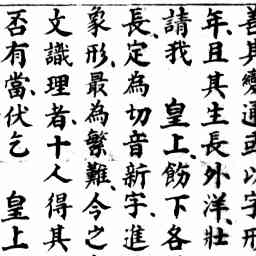 善其變通或以字形
年、且其生長外洋、壯
請我　皇上、飭下各
長、定為切音新字、進
象形、最為繁難、今之
文識理者、十人得其
否有當、伏乞　皇上